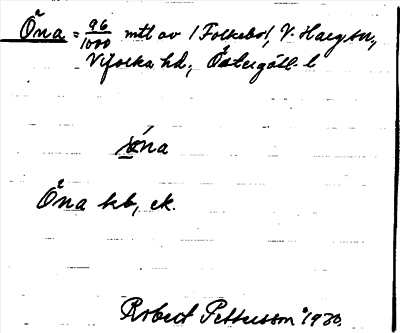 Öna = 96/1000 mtl av 1 Folkebol, V. Hargsn.,
Vifolka hd, Östergötl. l
öna
Öna kb, ek.
Robert Pettersson 1930.